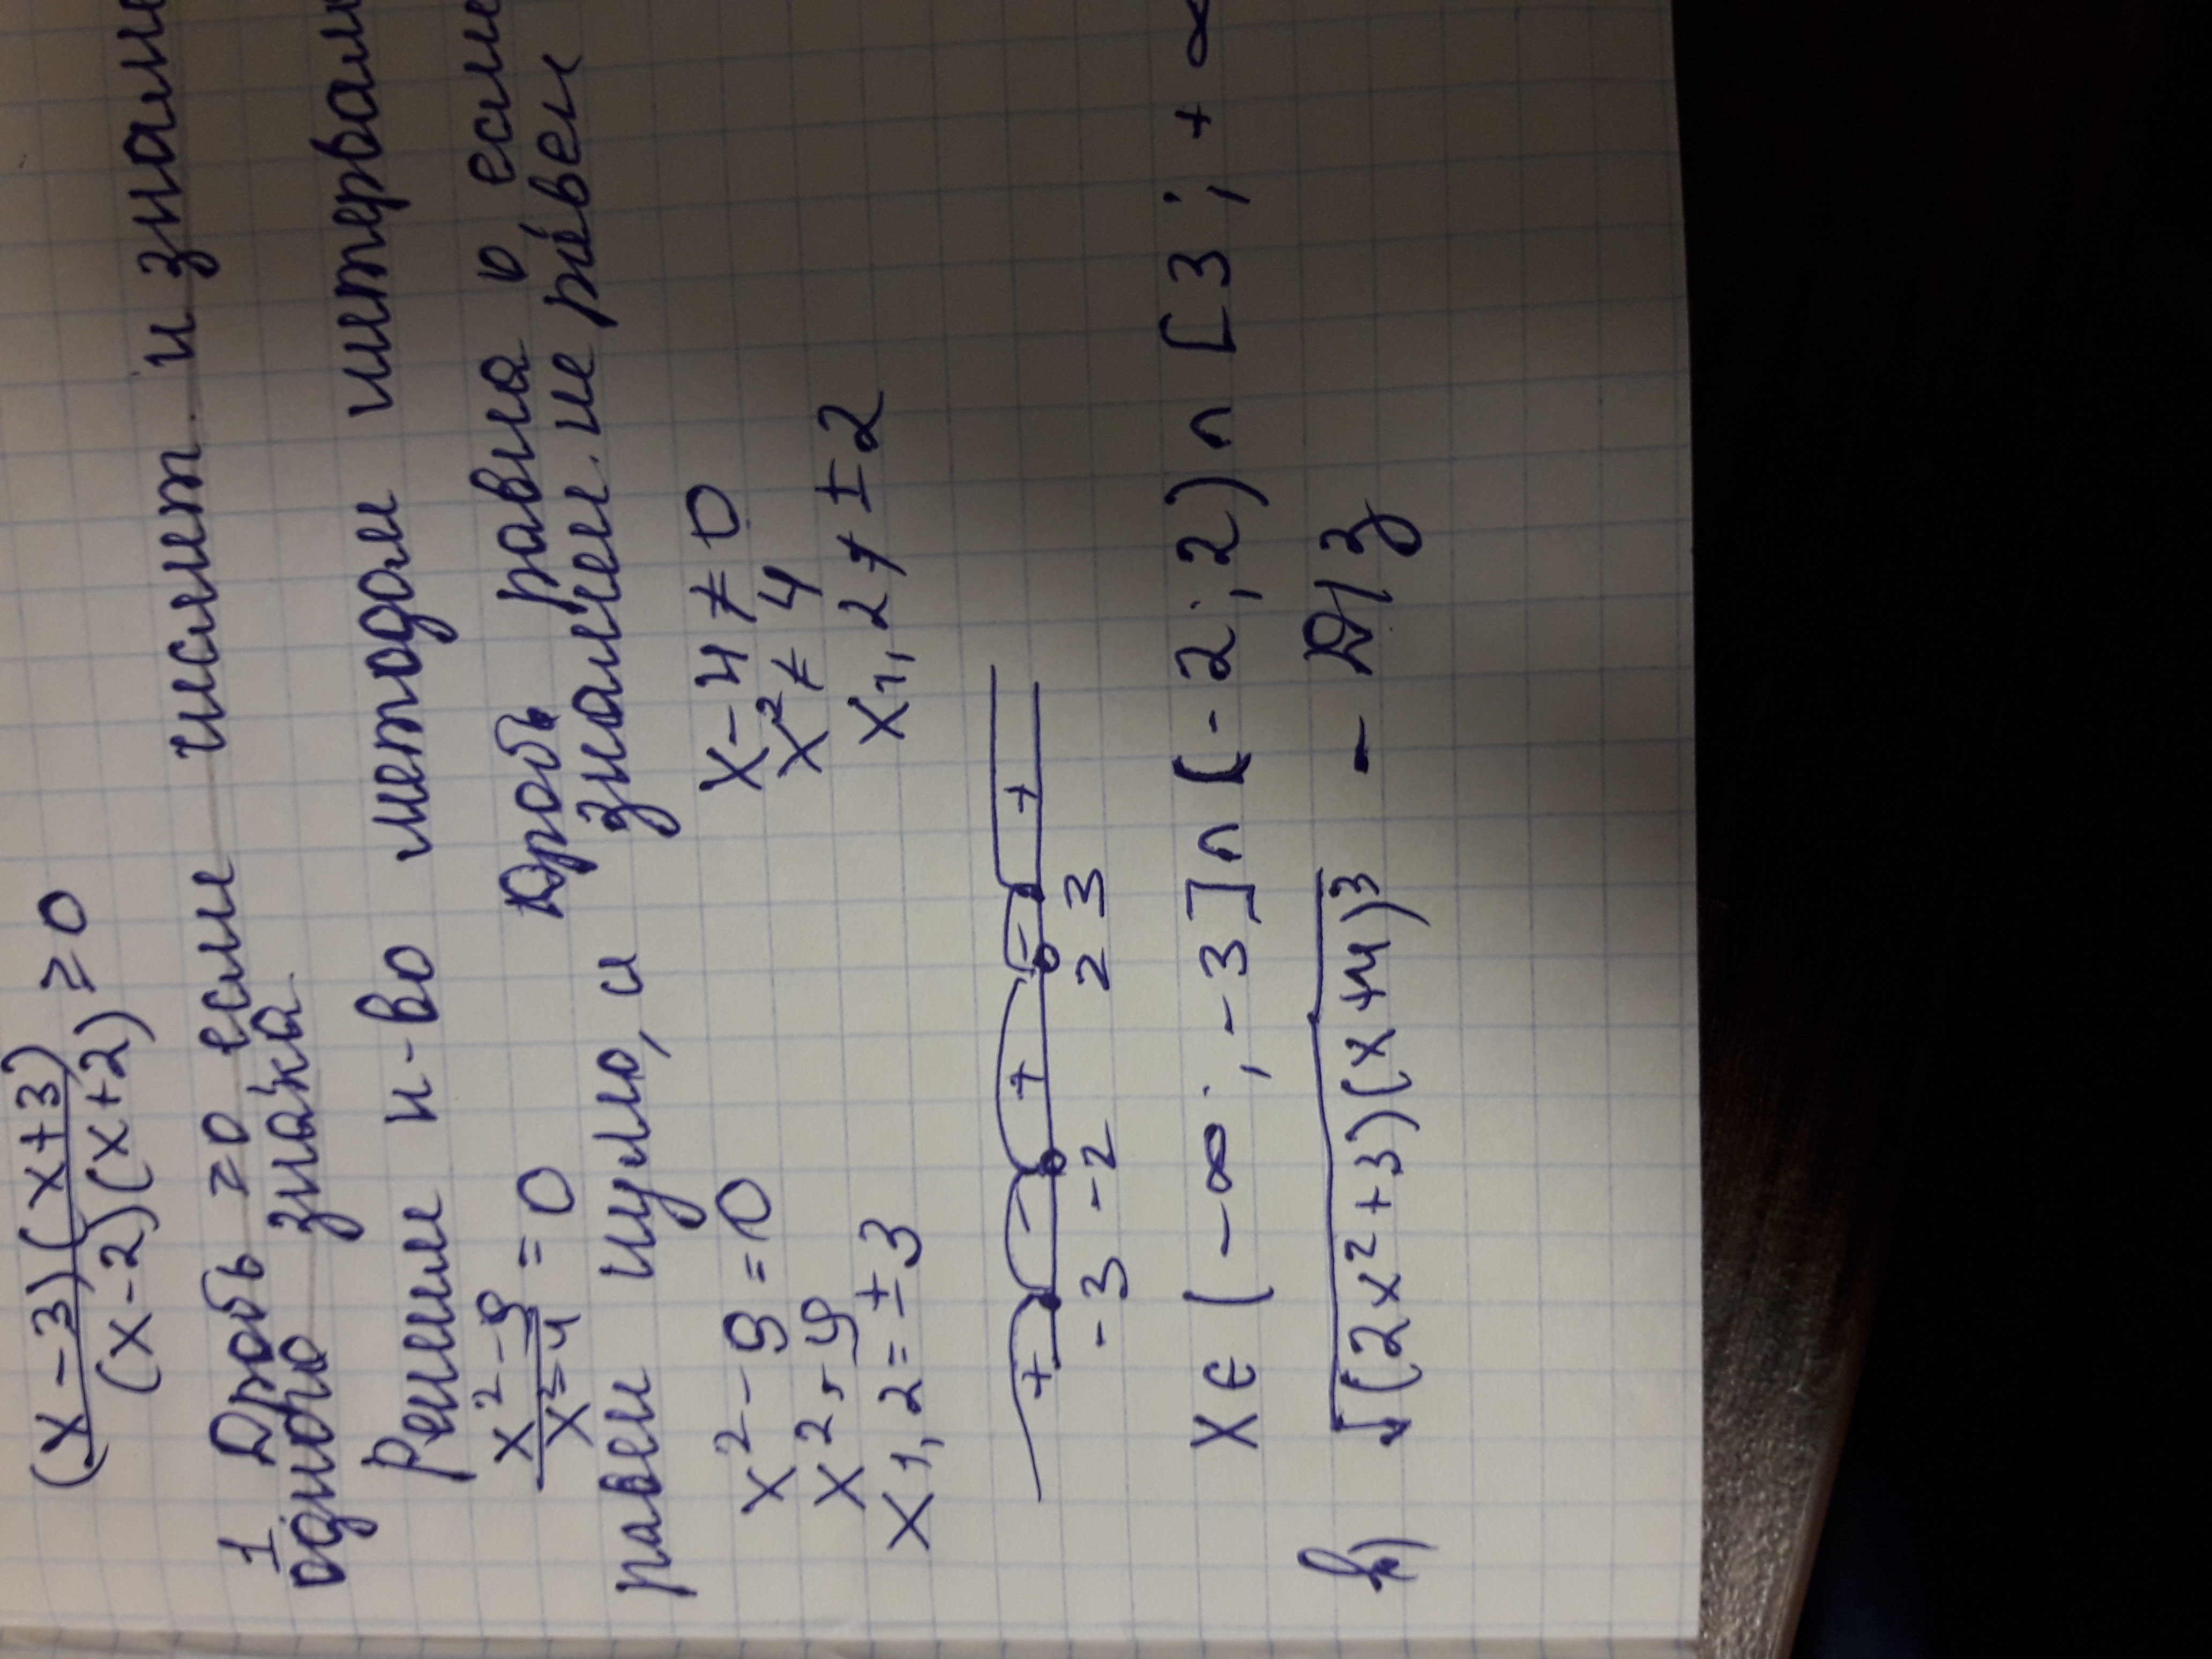 (x-3)(x+3)
(x-2)(x+2) ≥0
1. Дробь ≥0, если числит. и знаме
одного знака.
Решим н-во методом интервал
x²-9
x²-4 = 0 Дробь равна 0, если
равен нулю, и знамен. не равен
x²-9=0 x-4≠0
x²=9 x²≠4
x1,2=±3 x1,2≠±2
+ - + - +
-3 -2 2 3
X∈(-∞;-3]∩(-2;2)∩[3;+∞
в) √(2x²+3)(x+4)³ - Д/з